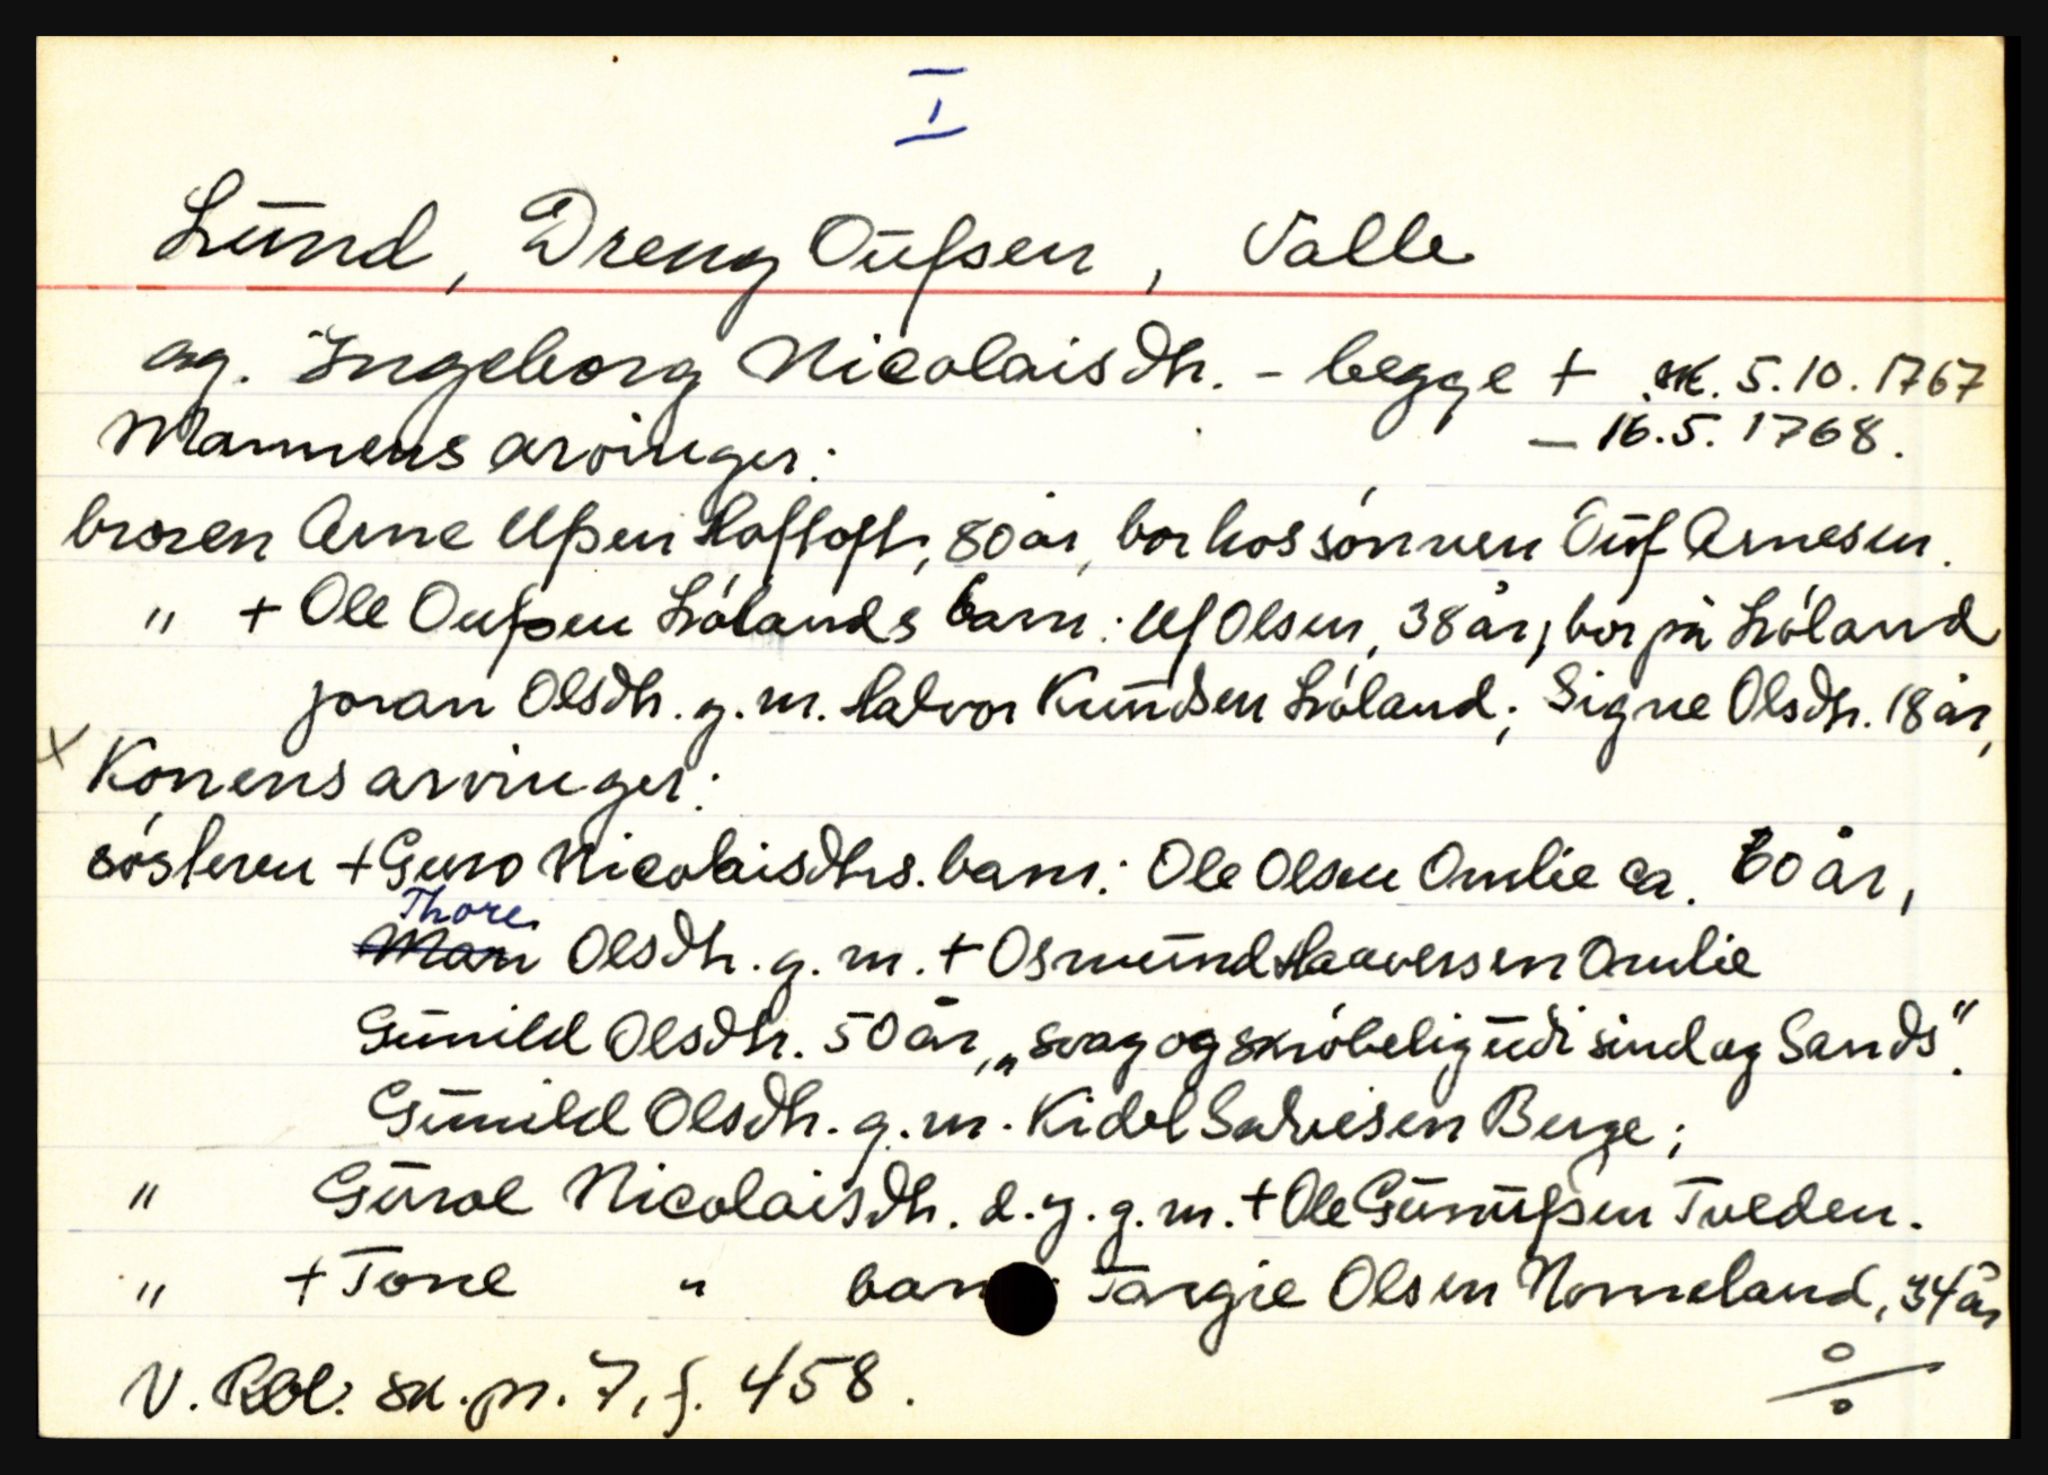 I
Lund, Dreng Oufsen, Valle
og. Ingeborg Nicolaisdtr. - begge + sk. 5.10.1767
Mannens arvinger: — 16.5.1768.
broren Arne Ufsen Haftoft, 80 år, bor hos sönnen Ouf Arnesen.
" + Ole Oufsen Lölands barn: Uf Olsen, 38 år, bor på Löland
Joran Olsdtr. g.m. Halvor Kundsen Löland; Signe Olsdtr. 18 år,
x Konens arvinger:
sösteren + Guro Nicolaisdtrs. barn: Ole Olsen Omlie ca. 60 år,
Thore
Mari Olsdtr. g.m. + Osmund Haaversen Omlie
Gunild Olsdtr. 50 år, „svag og skröbelig udi sind og Sands".
Gunild Olsdtr. g.m. Kidel Salvesen Berge;
" Guroe Nicolaisdtr. d.y. g.m. + Ole Gunufsen Tveden.
" + Tone " barn: Targie Olsen Nomeland, 34 år
V. Rbl. sk.pr. 7, f. 458. %